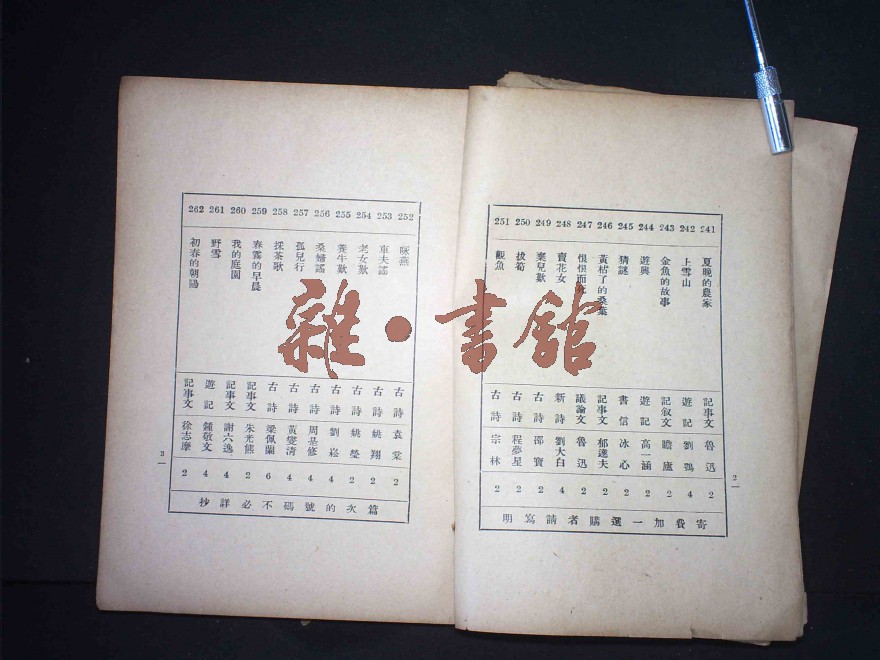 241 夏晚的農家 記事文 魯迅 2
242 上雪山 遊記 劉鶚 4
243 金魚的故事 記叙文 瞻廬 2
244 遊輿 遊記 高一涵 2
245 猜謎 書信 冰心 2
246 黃枯了的桑葉 記事文 郁達夫 2
247 恨恨而死 議論文 魯迅 2
248 賣花女 新詩 劉大白 4
249 棄兒歎 古詩 邵寶 2
250 拔筍 古詩 程夢星 2
251 觀魚 古詩 宗林 2
寄費加一選購者請寫明
2
252 燕 古詩 袁棠 2
253 車夫謠 古詩 姚翔 2
254 老女歎 古詩 姚燮 2
255 養牛歎 古詩 劉崧 4
256 桑婦謠 古詩 周是修 4
257 孤兒行 古詩 黃燮清 4
258 採茶歌 古詩 梁佩蘭 6
259 春霧的早晨 記事文 朱光熊 2
260 我的庭園 記事文 謝六逸 4
261 野雪 遊記 鍾敬文 4
262 初春的朝陽 記事文 徐志摩 2
篇次的號碼不必詳抄
3
雜·書館